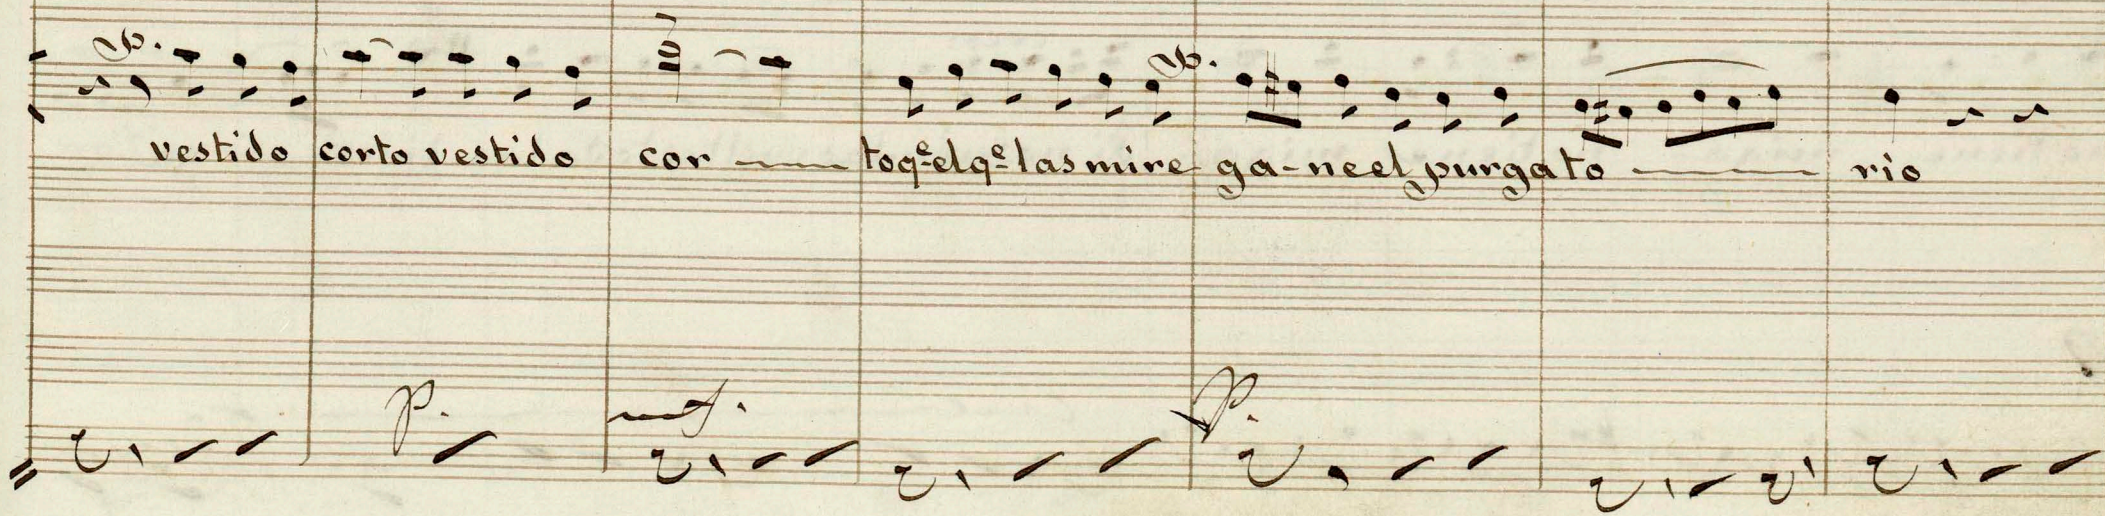 p.
vestido corto vestido cor to qe el qe las mire ga-ne el purgato rio
p. mf. p.